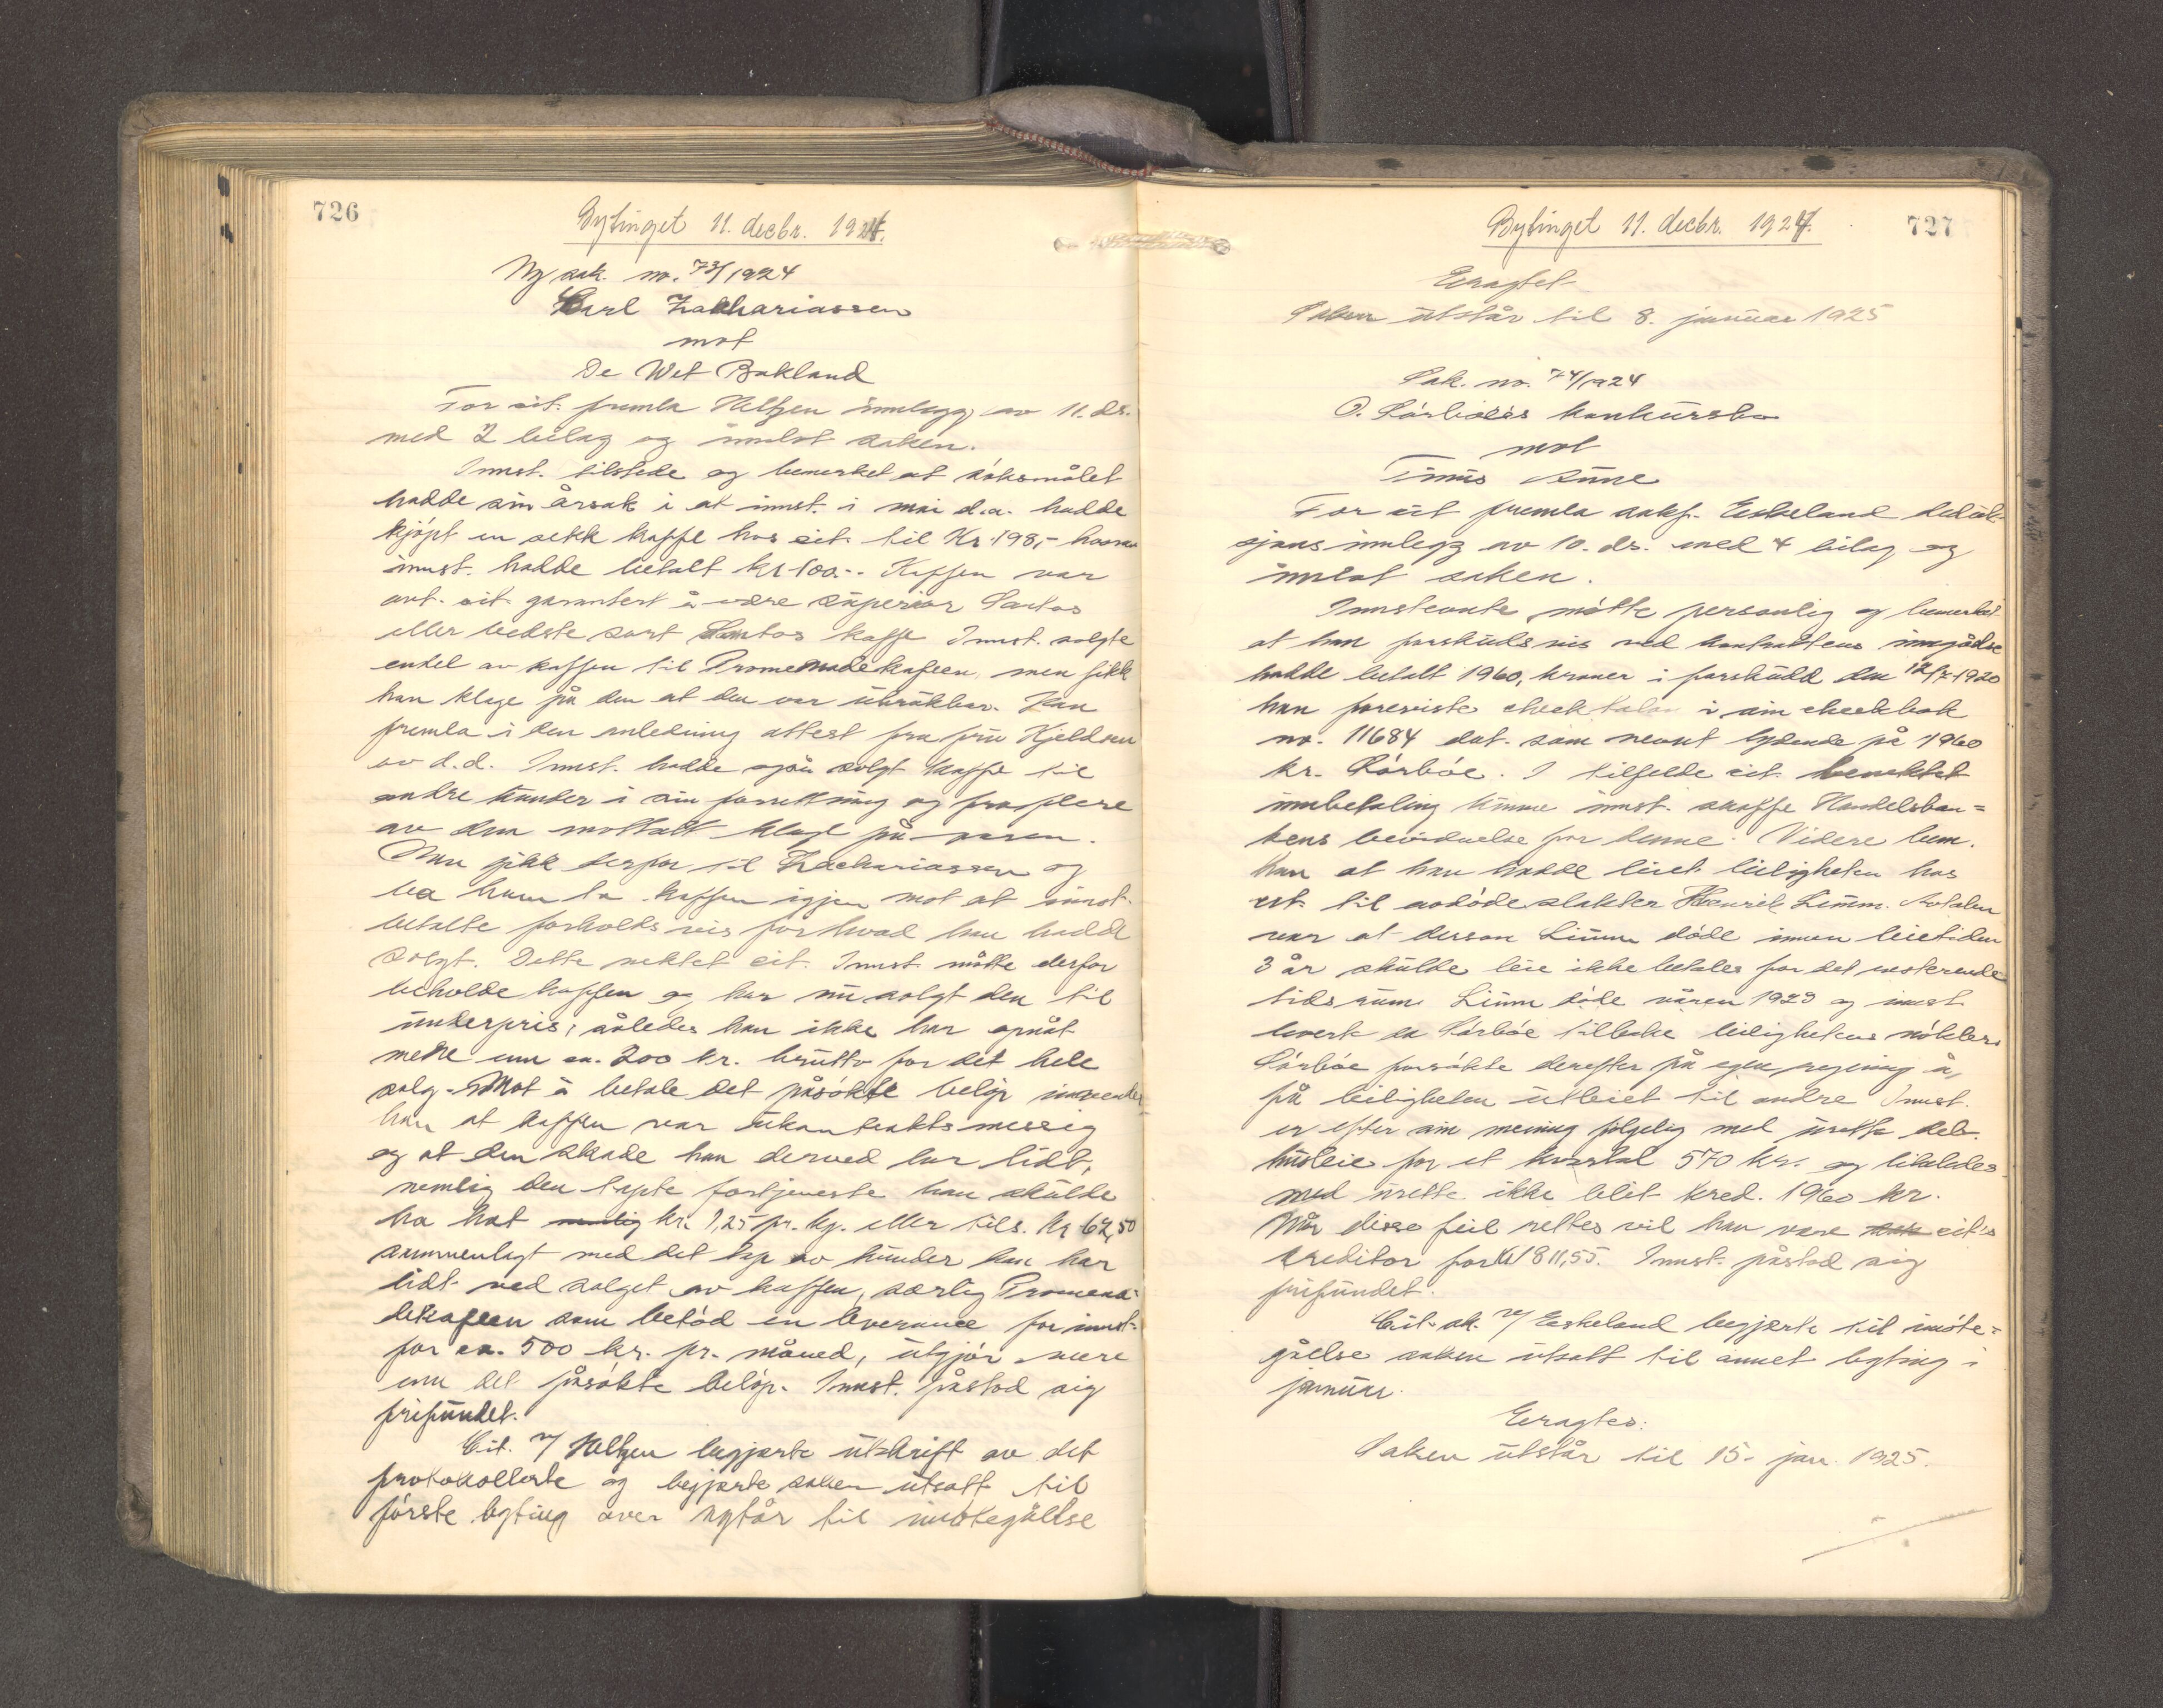 726
Bytinget 11. decbr. 1924.
Ny sak. no. 73/1924
Carl Zakhariassen
mot
De Wet Bakland
For cit. fremla Heltzen innlegg av 11. ds.
med 2 bilag og innlot saken.
Innst. tilstede og bemerket at søksmålet
hadde sin årsak i at innst. i mai d.a. hadde
kjøpt en sekk kaffe hos cit. til Kr. 198,- hvorav
innst. hadde betalt kr. 100.-. Kaffen var
av cit. garantert å være superior Santos
eller bedste sort Santos kaffe. Innst. solgte
endel av kaffen til Promenadekafeen, men fikk
han klage på den at den var ubrukbar. Han
fremla i den anledning attest fra fru Kjeldsen
av d.d. Innst. hadde også solgt kaffe til
andre kunder i sin forretning og fra flere
av dem mottatt klage på varen.
Han gikk derfor til Zachariassen og
ba ham ta kaffen igjen mot at innst.
betalte forholdsvis for hvad han hadde
solgt. Dette nektet cit. Innst måtte derfor
beholde kaffen og har nu solgt den til
underpris, således han ikke har opnåt
mere enn ca. 200 kr. brutto for det hele
salg. Mot å betale det påsøkte beløp innvender
han at kaffen var ukontraktsmessig
og at den skade han derved har lidt,
nemlig den tapte fortjeneste han skulde
ha hat nemlig kr. 1,25 pr. kg. eller tils. kr 62,50
sammenlagt med det tap av kunder han har
lidt ved salget av kaffen, særlig Promena-
dekafeen som betød en leveranse for innst.
for ca. 500 kr. pr. måned, utgjør mere
enn det påsøkte beløp. Innst. påstod sig
frifundet.
Cit. v/ Heltzen begjærte utskrift av det
protokollerte og begjærte saken utsatt til
første byting over nytår til imøtegåelse
727
Bytinget 11. decbr. 1924.
Eragtet
Saken utstår til 8. januar 1925
Sak. no. 74/1924
O. Sørbøes konkursbo
mot
Tinius Aune
For cit fremla sakf. Eskeland deduk-
sjonsinnlegg av 10. ds. med 4 bilag og
innlot saken.
Innstevnte møtte personlig og bemerket
at han forskudsvis ved kontraktens inngåelse
hadde betalt 1960, kroner i forskudd den 12/7 1920
han foreviste checktalon i sin checkbok
no. 11684 dat. som nevnt lydende på 1960
kr. Sørbøe. I tilfelde cit. benektet
innbetaling kunne innst. skaffe Handelsban=
kens bevidnelse for denne. Videre bem.
han at han hadde leiet leiligheten hos
cit. til avdøde slakter Henrik Limm. Avtalen
var at dersom Limm døde innen leietiden
3 år skulde leie ikke betales for det resterende
tidsrum. Limm døde våren 1923 og innst.
leverte da Sørbøe tilbake leilighetens nøkler.
Sørbøe forsøkte derefter på egen regning å
få leiligheten utleiet til andre. Innst.
er efter sin mening følgelig med urette deb.
husleie for et kvartal 570 kr. og likeledes
med urette ikke blit kred. 1960 kr.
Når disse feil rettes vil han være cit's
kreditor for kr 1811,55. Innst. påstod sig
frifundet.
Cit. sk. v/ Eskeland begjærte til imøte=
gåelse saken utsatt til annet byting i
januar.
Eragtes:
Saken utstår til 15. jan. 1925.